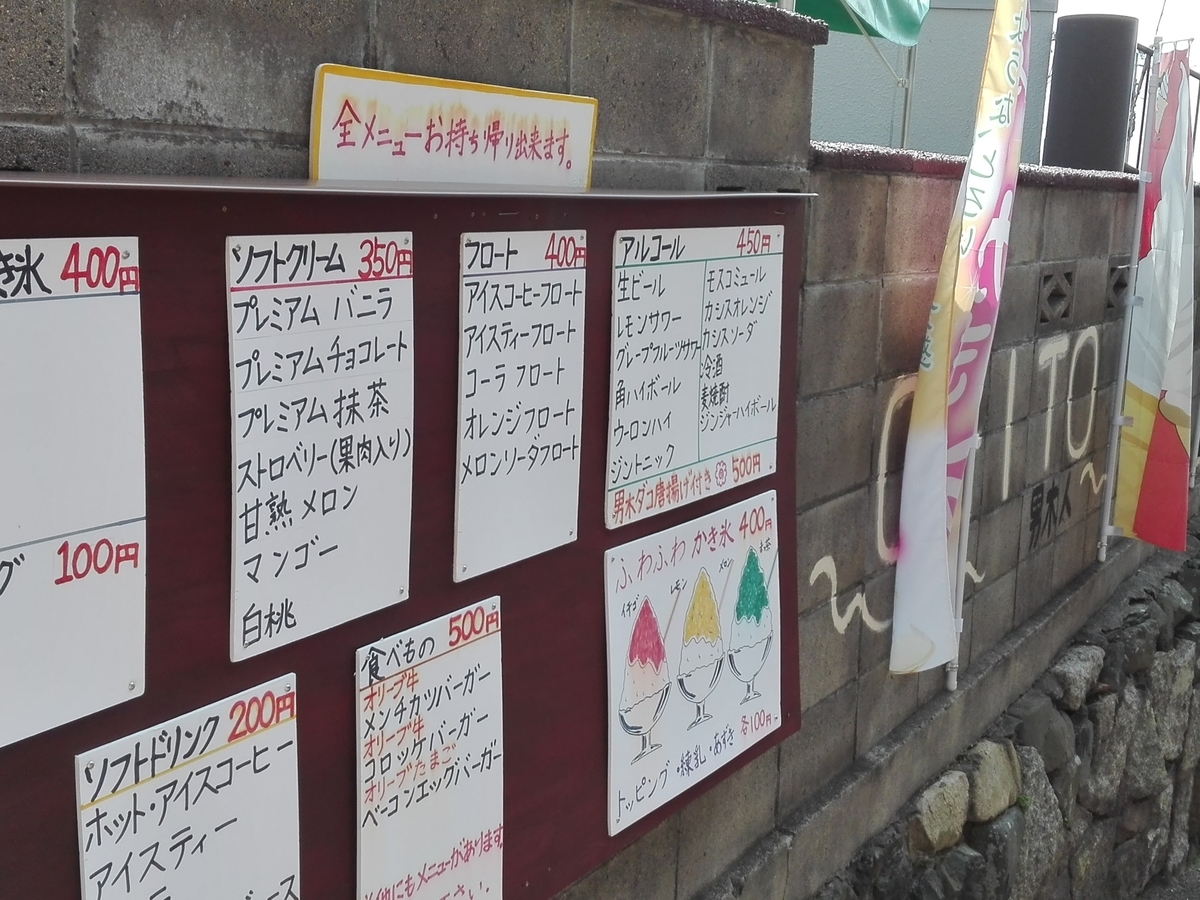 全メニューお持ち帰り出来ます。
き氷 400円
グ 100円
ソフトクリーム 350円
プレミアム バニラ
プレミアムチョコレート
プレミアム抹茶
ストロベリー(果肉入り)
甘熟メロン
マンゴー
白桃
フロート 400円
アイスコーヒーフロート
アイスティーフロート
コーラ フロート
オレンジフロート
メロンソーダフロート
アルコール 450円
生ビール
レモンサワー
グレープフルーツサワー
角ハイボール
ウーロンハイ
ジントニック
モスコミュール
カシスオレンジ
カシスソーダ
冷酒
麦焼酎
ジンジャーハイボール
男木ダコ唐揚げ付き 500円
ソフトドリンク 200円
ホット・アイスコーヒー
アイスティー
ース
食べもの 500円
オリーブ牛
メンチカツバーガー
オリーブ牛
コロッケバーガー
オリーブたまご
ベーコンエッグバーガー
他にもメニューがあります
さい.
ふわふわ かき氷 400円
イチゴ
レモン
メロン
抹茶
トッピング ・練乳 ・あずき 各100円-
ITO
男木人